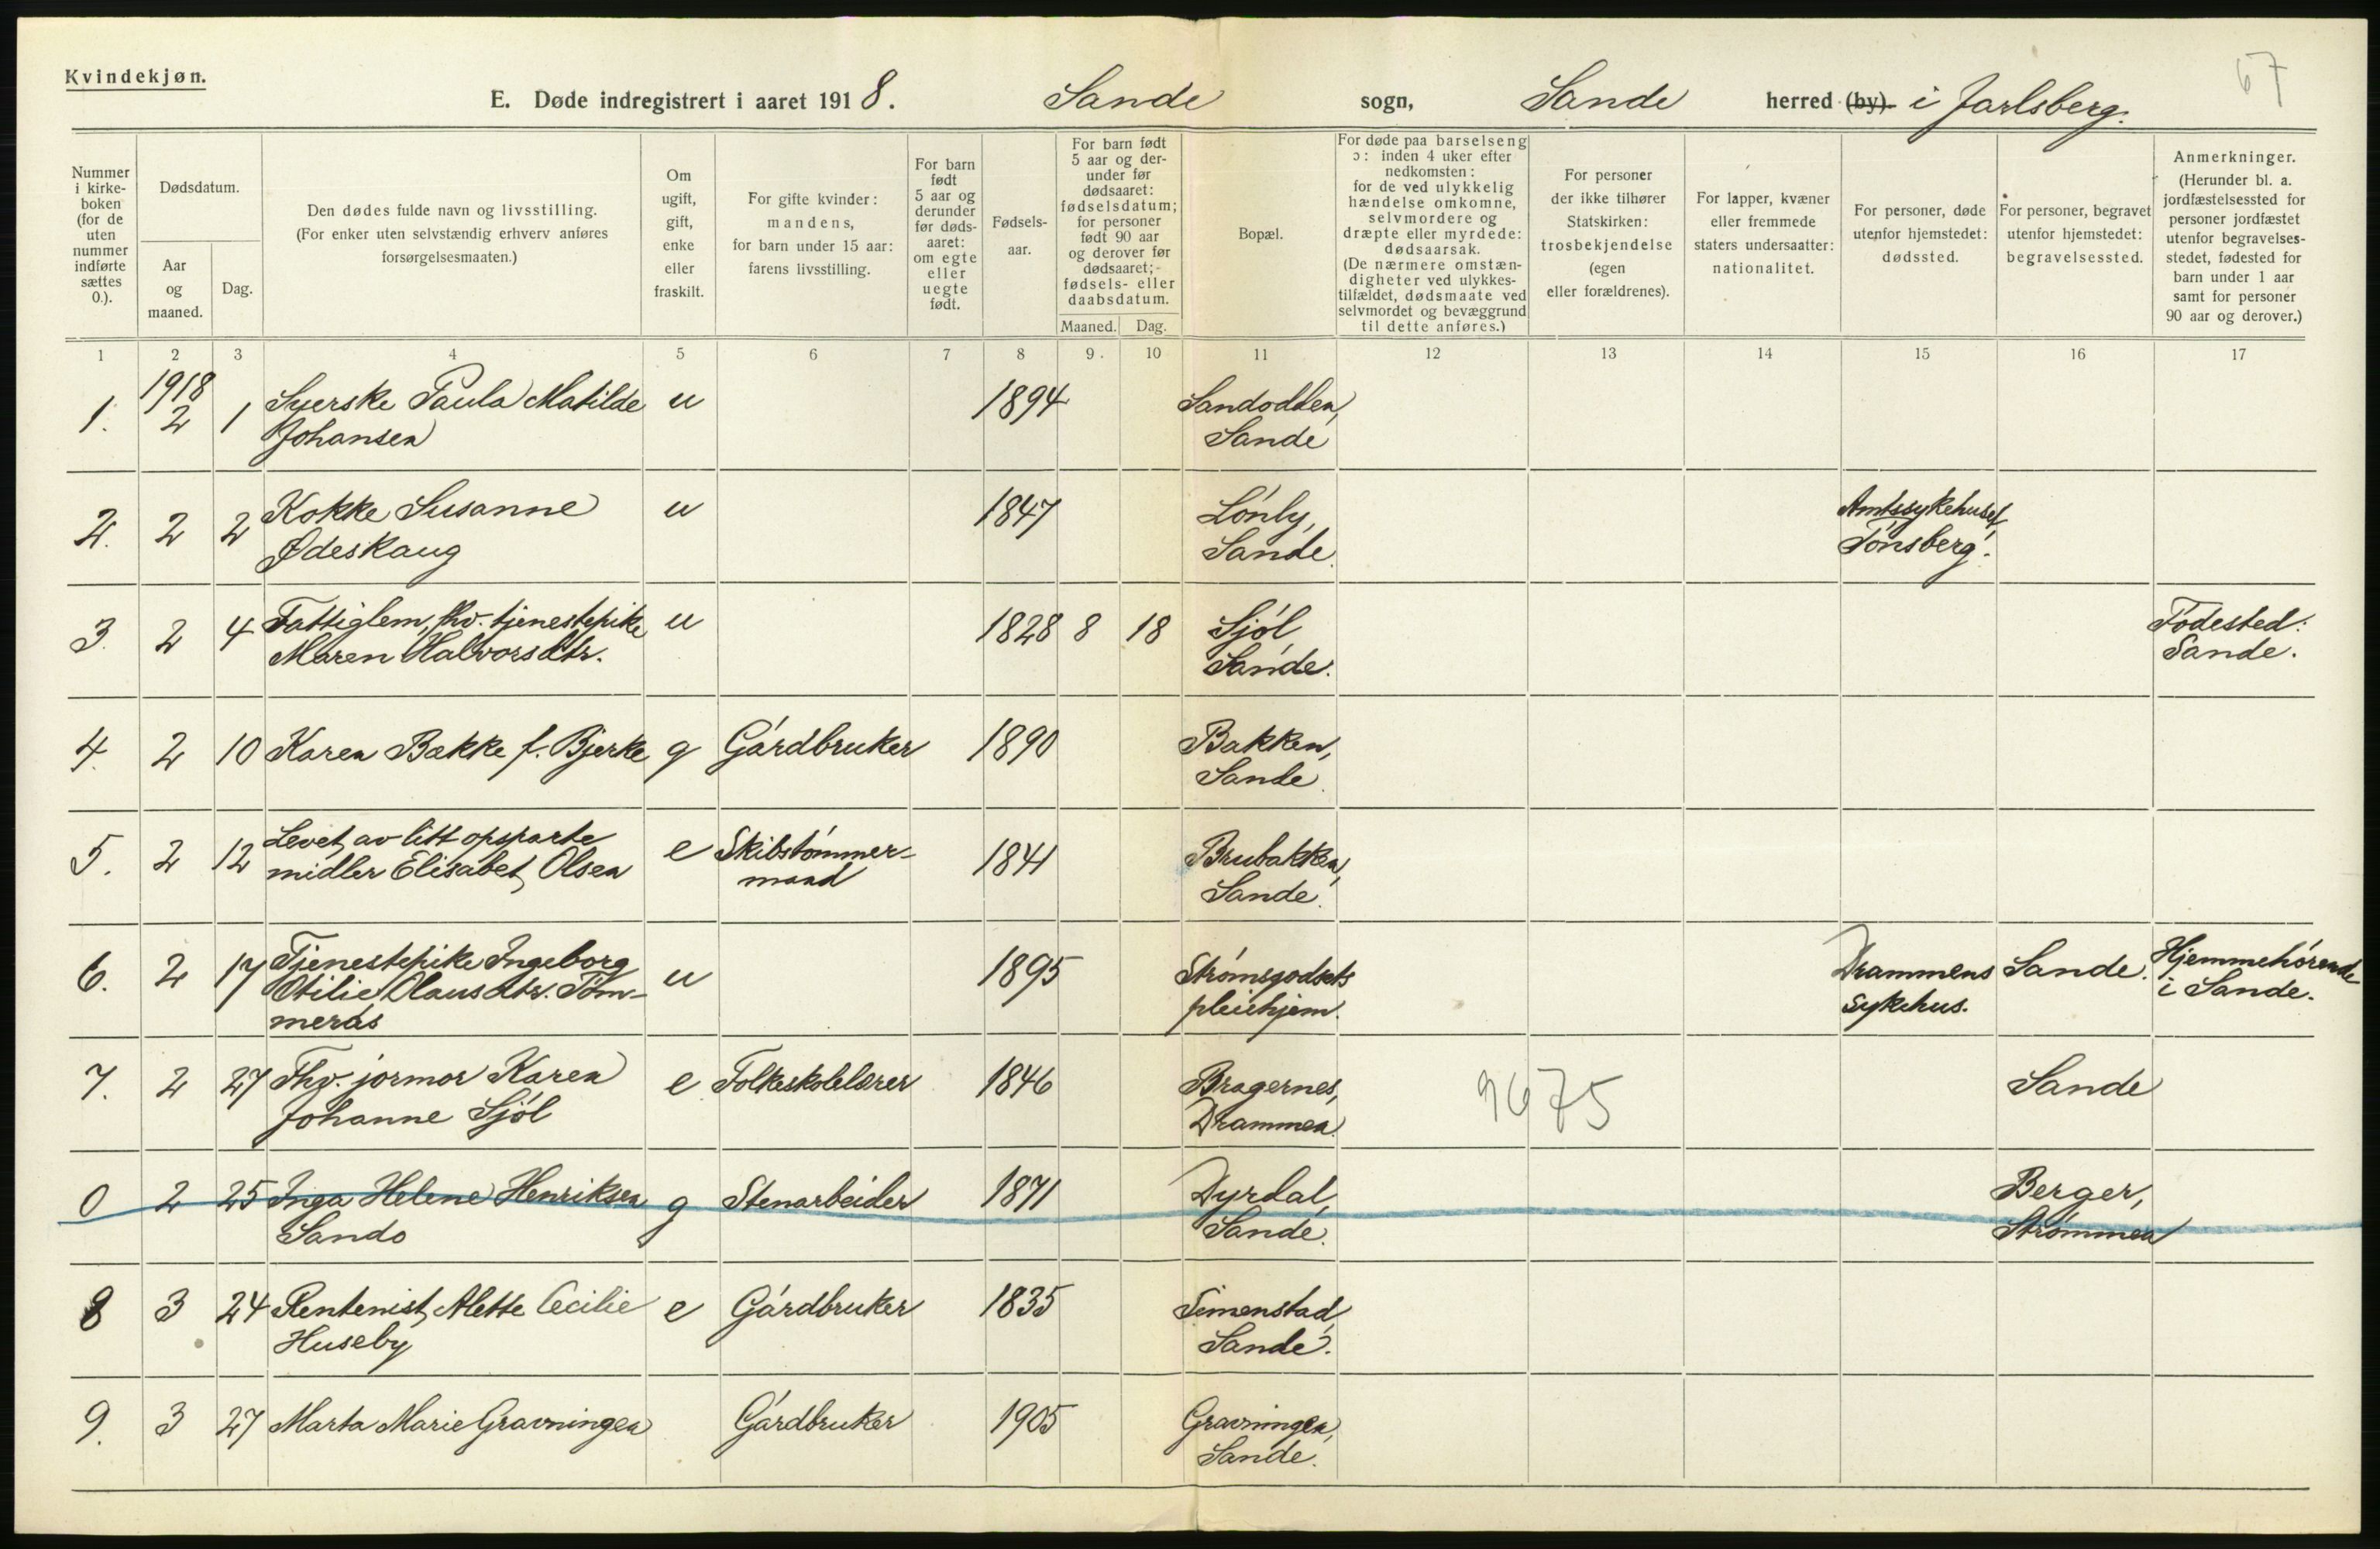 Kvindekjøn.
67
E. Døde indregistrert i aaret 1918. Sande sogn, Sande herred (by). i Jarlsberg.
Nummer i kirkeboken (for de uten nummer indførte sættes 0.).
Dødsdatum.
Aar og maaned.
Dag.
Den dødes fulde navn og livsstilling.
(For enker uten selvstændig erhverv anføres forsørgelsesmaaten.)
Om ugift, gift, enke eller fraskilt.
For gifte kvinder: mandens, for barn under 15 aar: farens livsstilling.
For barn født 5 aar og derunder før dødsaaret: om egte eller uegte født.
Fødselsaar.
For barn født 5 aar og derunder før dødsaaret: fødselsdatum; for personer født 90 aar og derover før dødsaaret; fødsels- eller daabsdatum.
Maaned. Dag.
Bopæl.
For døde paa barselseng ɔ: inden 4 uker efter nedkomsten: for de ved ulykkelig hændelse omkomne, selvmordere og dræpte eller myrdede: dødsaarsak.
(De nærmere omstændigheter ved ulykkestilfældet, dødsmaate ved selvmordet og bevæggrund til dette anføres.)
For personer der ikke tilhører Statskirken: trosbekjendelse (egen eller forældrenes).
For lapper, kvæner eller fremmede staters undersaatter: nationalitet.
For personer, døde utenfor hjemstedet: dødssted.
For personer, begravet utenfor hjemstedet: begravelsessted.
Anmerkninger.
(Herunder bl. a. jordfæstelsessted for personer jordfæstet utenfor begravelsesstedet, fødested for barn under 1 aar samt for personer 90 aar og derover.)
1 2 3 4 5 6 7 8 9. 10 11 12 13 14 15 16 17
1918
1. 2 1 Syerske Paula Matilde u 1894 Sandodden,
Johansen Sande
2. 2 2 Kokke Susanne u 1847 Lónly, Amtssykehuset,
Ødeskaug Sande. Tónsberg.
3. 2 4 Fattiglem, fhv. tjenestepike u 1828 8 18 Sjól, Fódested:
Maren Halvorsdtr. Sande. Sande.
4. 2 10 Karen Bakke f. Bjerke g Gárdbruker 1890 Bakken,
Sande.
5. 2 12 Levet av litt opsparte e Skibstómmer- 1841 Brubakken,
midler Elisabet Olsen mand Sande.
6. 2 17 Tjenestepike Ingeborg u 1895 Strómsgodsets Drammens Sande. Hjemmehórende
Otilie Olausdtr. Tóm- pleiehjem. sykehus. i Sande.
merás
7. 2 27 Fhv. jormor Karen e Folkeskolelærer 1846 Bragernes, Sande
Johanne Sjól Drammen.
9675
0 2 25 Inga Helene Henriksen g Stenarbeider 1871 Dyrdal, Berger,
Sando Sande. Strómmen
8 3 24 Rentenist Alette Cecilie e Gárdbruker 1835 Simenstad,
Huseby Sande.
9. 3 27 Marta Marie Gravningen Gárdbruker 1905 Gravningen,
Sande.